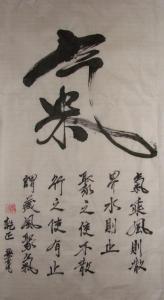 氣
氣乘風則散
界水則止
聚之使不散
行之使有止
謂藏風聚氣